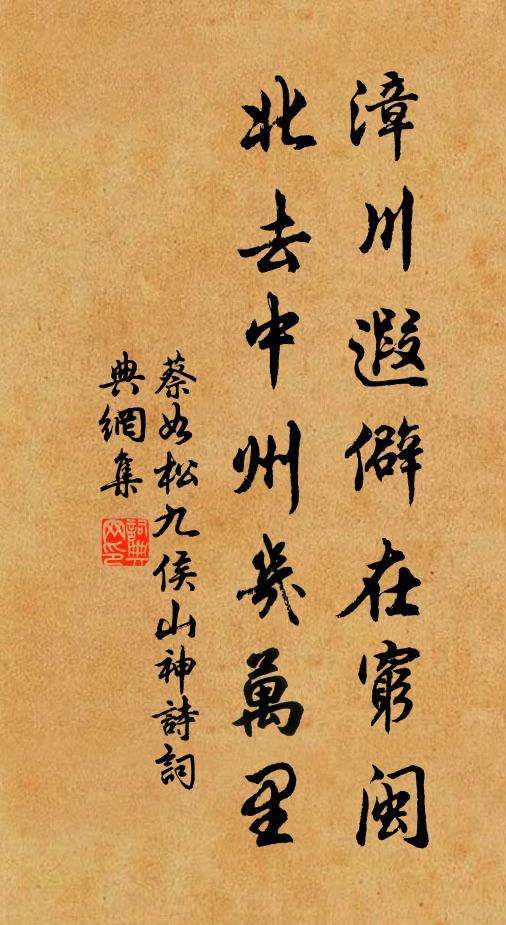 漳川遐僻在窮閩
北去中州幾萬里
蔡如松九侯山神詩詞
典網集
詞典網印